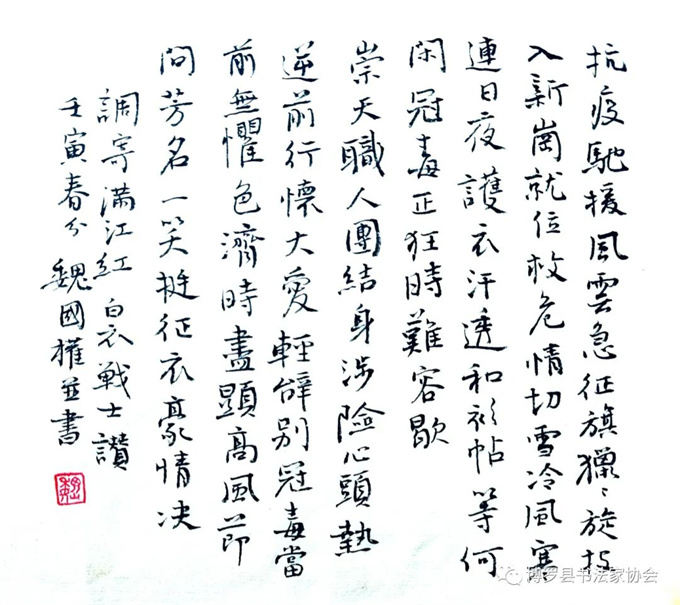 抗疫馳援風雲急征旗獵〻旋拔
入新崗就位救危情切雪冷風寒
連日夜護衣汗透和衫帖等何
閑冠毒正狂時難容歇
崇天職人團結身涉險心頭熱
逆前行懷大愛輕辭别冠毒當
前無懼色濟時盡顯高風節
问芳名一笑挺征衣豪情决
調寄满江紅白衣戰士讚
壬寅春分魏國權並書
博罗县书法家协会